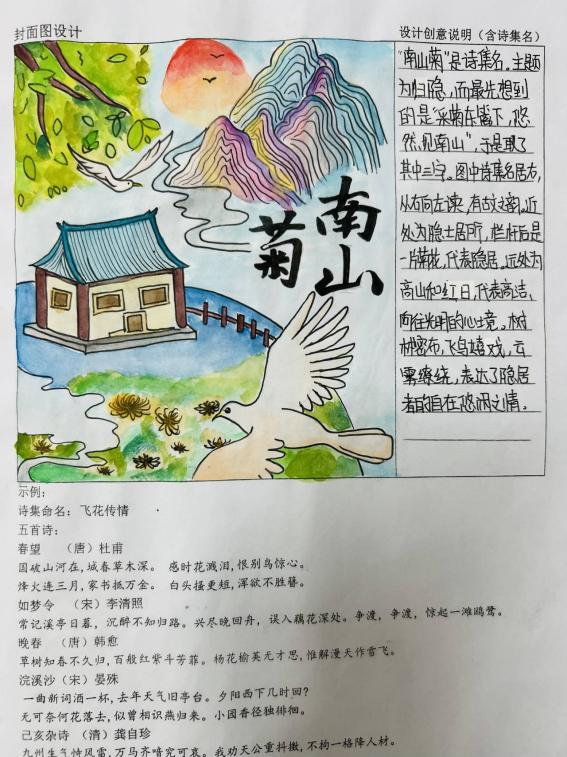 封面图设计
设计创意说明（含诗集名）
南山
菊
"南山菊"是诗集名。主题
为归隐，而最先想到
的是"采菊东篱下，悠
然见南山"，于是取了
其中三字。图中诗集名居右，
从右向左读，有古文之韵。近
处为隐士居所，栏杆后是
一片菊花，代表隐居。远处为
高山和红日，代表高洁，
向往光明的心境。树
林密布，飞鸟嬉戏，云
雾缭绕，表达了隐居
者的自在悠闲之情。
示例：
诗集命名：飞花传情
五首诗：
春望 （唐）杜甫
国破山河在，城春草木深。 感时花溅泪，恨别鸟惊心。
烽火连三月，家书抵万金。 白头搔更短，浑欲不胜簪。
如梦令 （宋）李清照
常记溪亭日暮，沉醉不知归路。兴尽晚回舟，误入藕花深处。争渡，争渡，惊起一滩鸥鹭。
晚春 （唐）韩愈
草树知春不久归，百般红紫斗芳菲。杨花榆荚无才思，惟解漫天作雪飞。
浣溪沙（宋）晏殊
一曲新词酒一杯，去年天气旧亭台。夕阳西下几时回？
无可奈何花落去，似曾相识燕归来。小园香径独徘徊。
己亥杂诗 （清）龚自珍
九州生气恃风雷，万马齐喑究可哀。我劝天公重抖擞，不拘一格降人材。